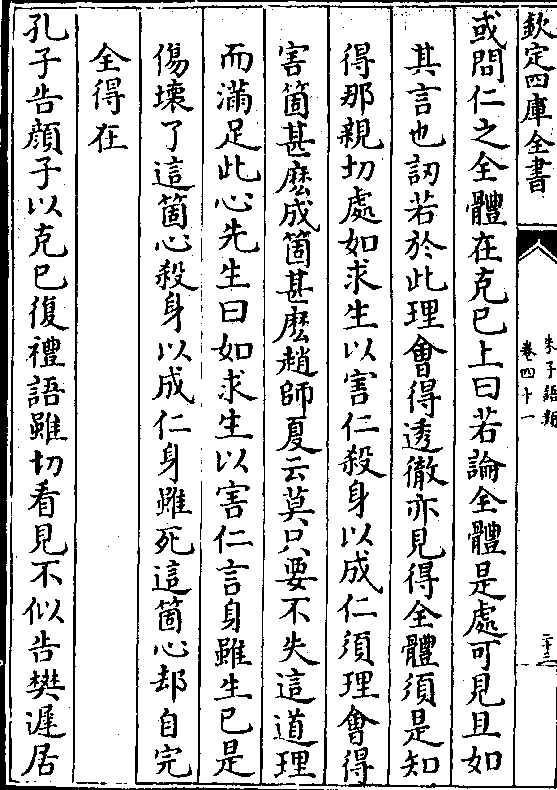 欽定四庫全書
朱子語類
卷四十一
二十三
或問仁之全體在克已上曰若論全體是處可見且如
其言也訒若於此理會得透徹亦見得全體須是知
得那親切處如求生以害仁殺身以成仁須理會得
害箇甚麽成箇甚麽趙師夏云莫只要不失這道理
而滿足此心先生曰如求生以害仁言身雖生已是
傷壞了這箇心殺身以成仁身雖死這箇心却自完
全得在
孔子告顔子以克已復禮語雖切看見不似告樊遲居